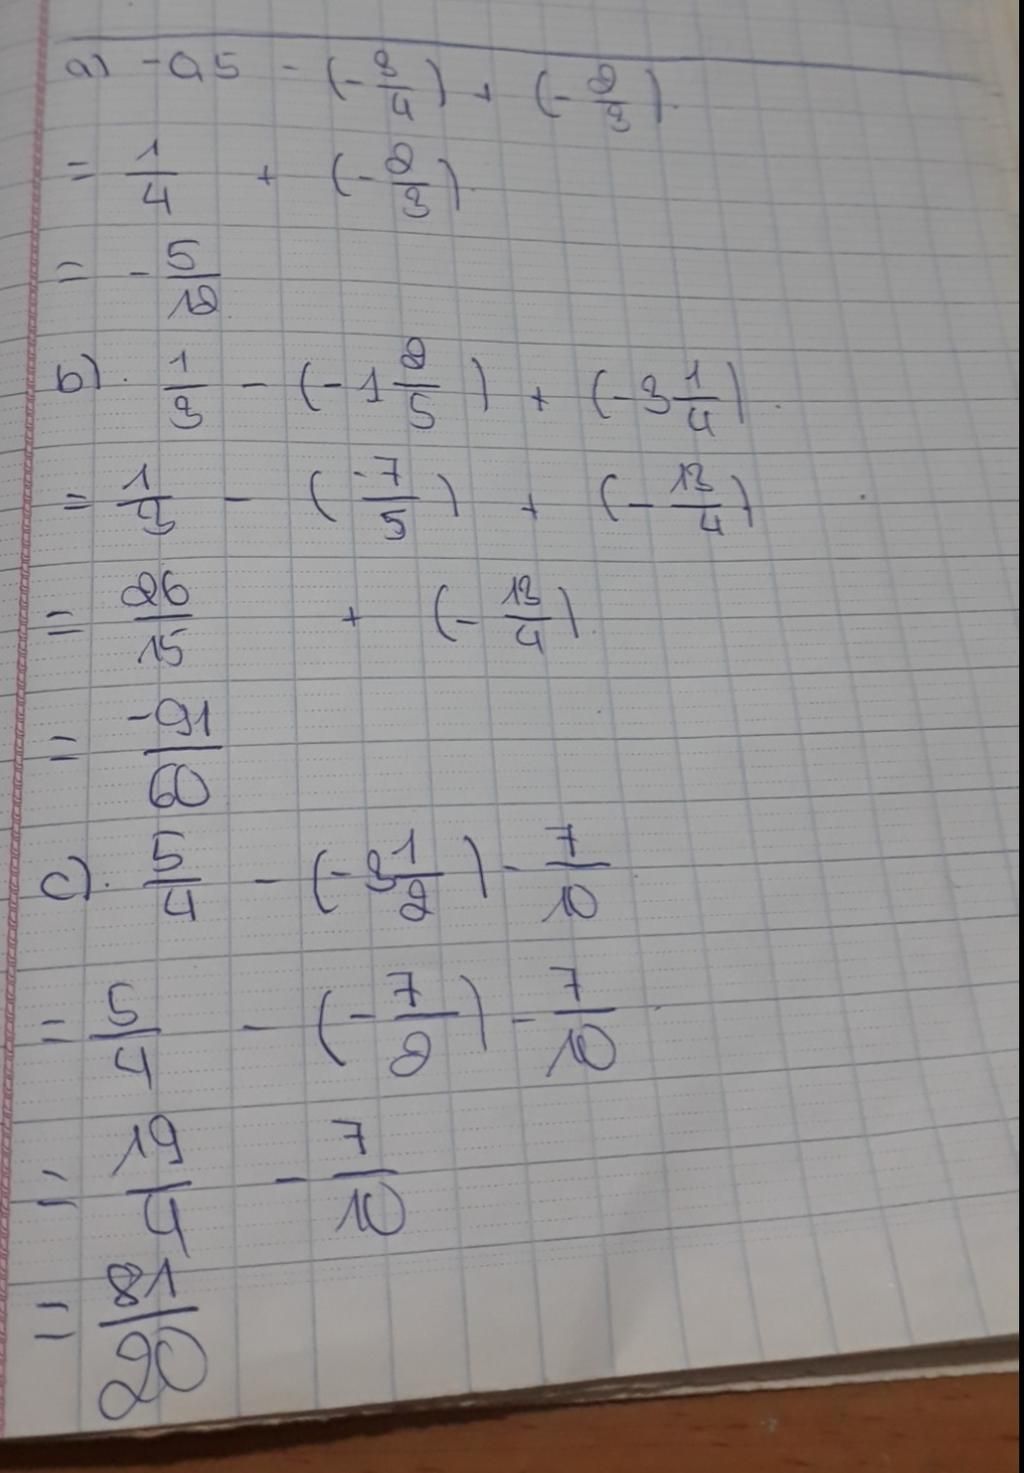 a) -0,5 - (-3/4) + (-2/3).
= 1/4 + (-2/3).
= -5/12
b). 1/3 - (-1 2/5) + (-3 1/4).
= 1/3 - (-7/5) + (-13/4)
= 26/15 + (-13/4).
= -91/60
c). 5/4 - (-3 1/2) - 7/10
= 5/4 - (-7/2) - 7/10
= 19/4 - 7/10
= 81/20